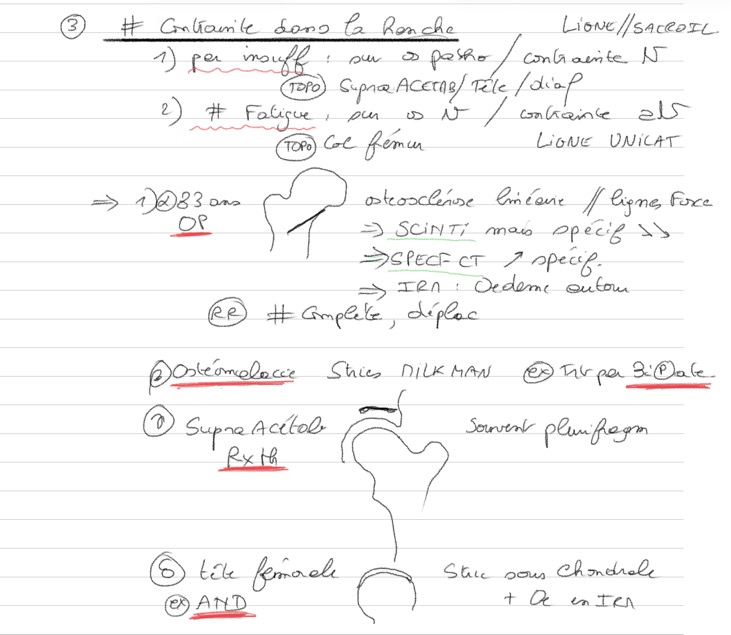 ③ # Contrainte dans la Hanche LIGNE//SACROIL.
1) par insuff : sur os patho / contrainte N
TOPO Supra ACETAB / Tête / diaf
2) # Fatigue, sur os N / contrainte
TOPO Col fémur LIGNE UNICAT
⇒ 1) 83 ans ostéosclérose linéaire // lignes Force
OP ⇒ SCINTI mais spécif ↘↘
⇒ SPECT CT ↗ spécif.
⇒ IRM : Oedeme autour
RR # Complète, déplac
Ostéomalacie Stries MILKMAN ex par Ate
SupraAcétab Souvent plurifragm
Rxth
tête fémorale Strie sous Chondrale
ex AND + Oe en IRM